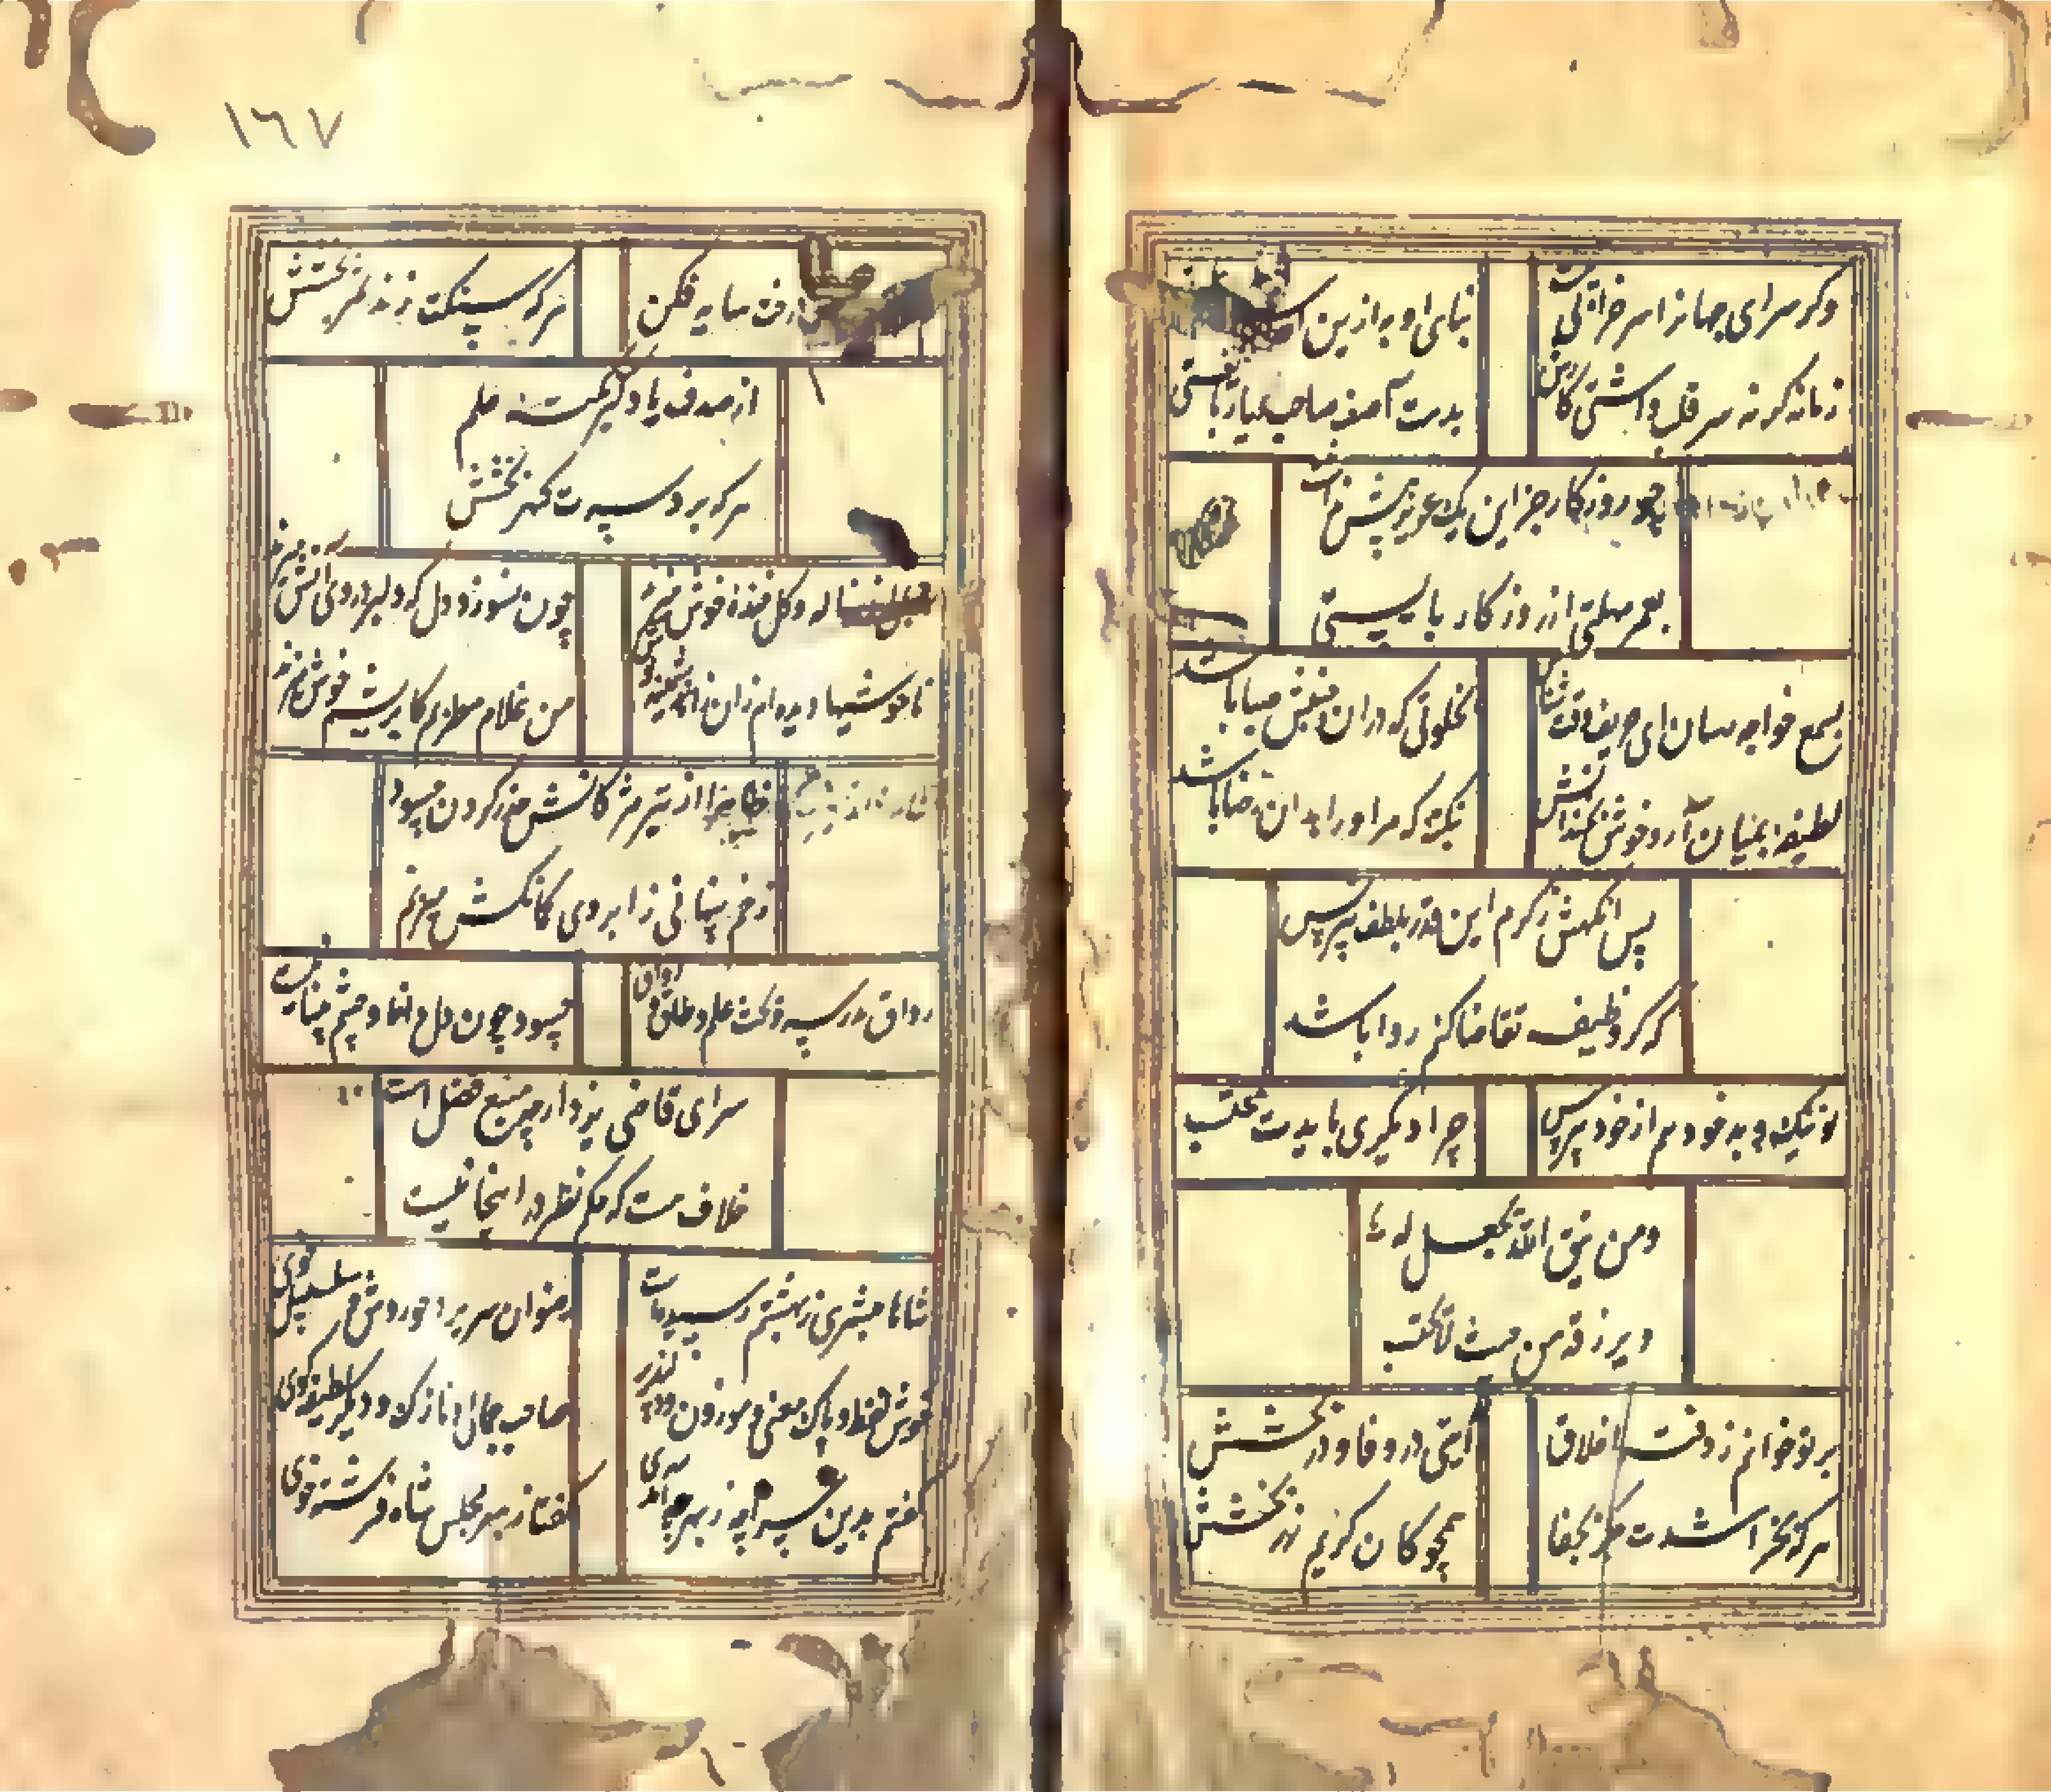 وگر سرای جهانرا سر خرابی نیست
بنای او به ازین
زمانه گر نه سر قلب داشتی کارش
بدست آصف صاحب عیار بایستی
چو روزگار جز این یک عزیز پیش نداشت
بعمر مهلتی از روزگار بایستی
بسمع خواجه رسان ای حریف وقت شناس
بخلوتی که دران جنبش صبا باشد
لطیفه بمیان آر و خوش بخندانش
بنکته که مر او را بدان رضا باشد
پس انگهش ز کرم این قدر بلطف بپرس
که گر وظیفه تقاضا کنم روا باشد
تو نیک و بد خود هم از خود بپرس
چرا دیگری بایدت محتسب
ومن یتق الله یجعل له
ویرزقه من حیث لا یحتسب
بر تو خوانم ز دفتر اخلاق
آیتی در وفا و در بخشش
هر که بخراشدت جگر بجفا
همچو کان کریم زر بخشش
١٦٧
درخت سایه فکن
هر که سنکت زند ثمر بخشش
از صدف یاد گیر نکته حلم
هر که برد سرت گهر بخشش
ناله و گل خنده خوش میزند
چون نسوزد دل که دلبر در وی آتش میزند
ناخوشیها دیده ام زان زاهد
من غلام مطربم کابریشم خوش میزند
ظاهرا از تیر مژگانش حذر کردن چه سود
زخم پنهانی ز ابروی کمانکش میزند
رواق مدرسه و بحث علم و طاق و رواق
چه سود چون دل دانا و چشم بینا نیست
سرای قاضی یزد ار چه منبع فضل است
خلاف نیست که علم نظر در اینجا نیست
شاها مبشری ز بهشتم رسیده است
رضوان سریر و حوروش و سلسبیل موی
خوش لفظ و پاک معنی و موزون و دلپذیر
صاحب جمال و نازک و دیگر لطیفه گوی
گفتم بدین چرا ز بهر چه آمدی
گفتا ز بهر مجلس شاه فرشته خوی